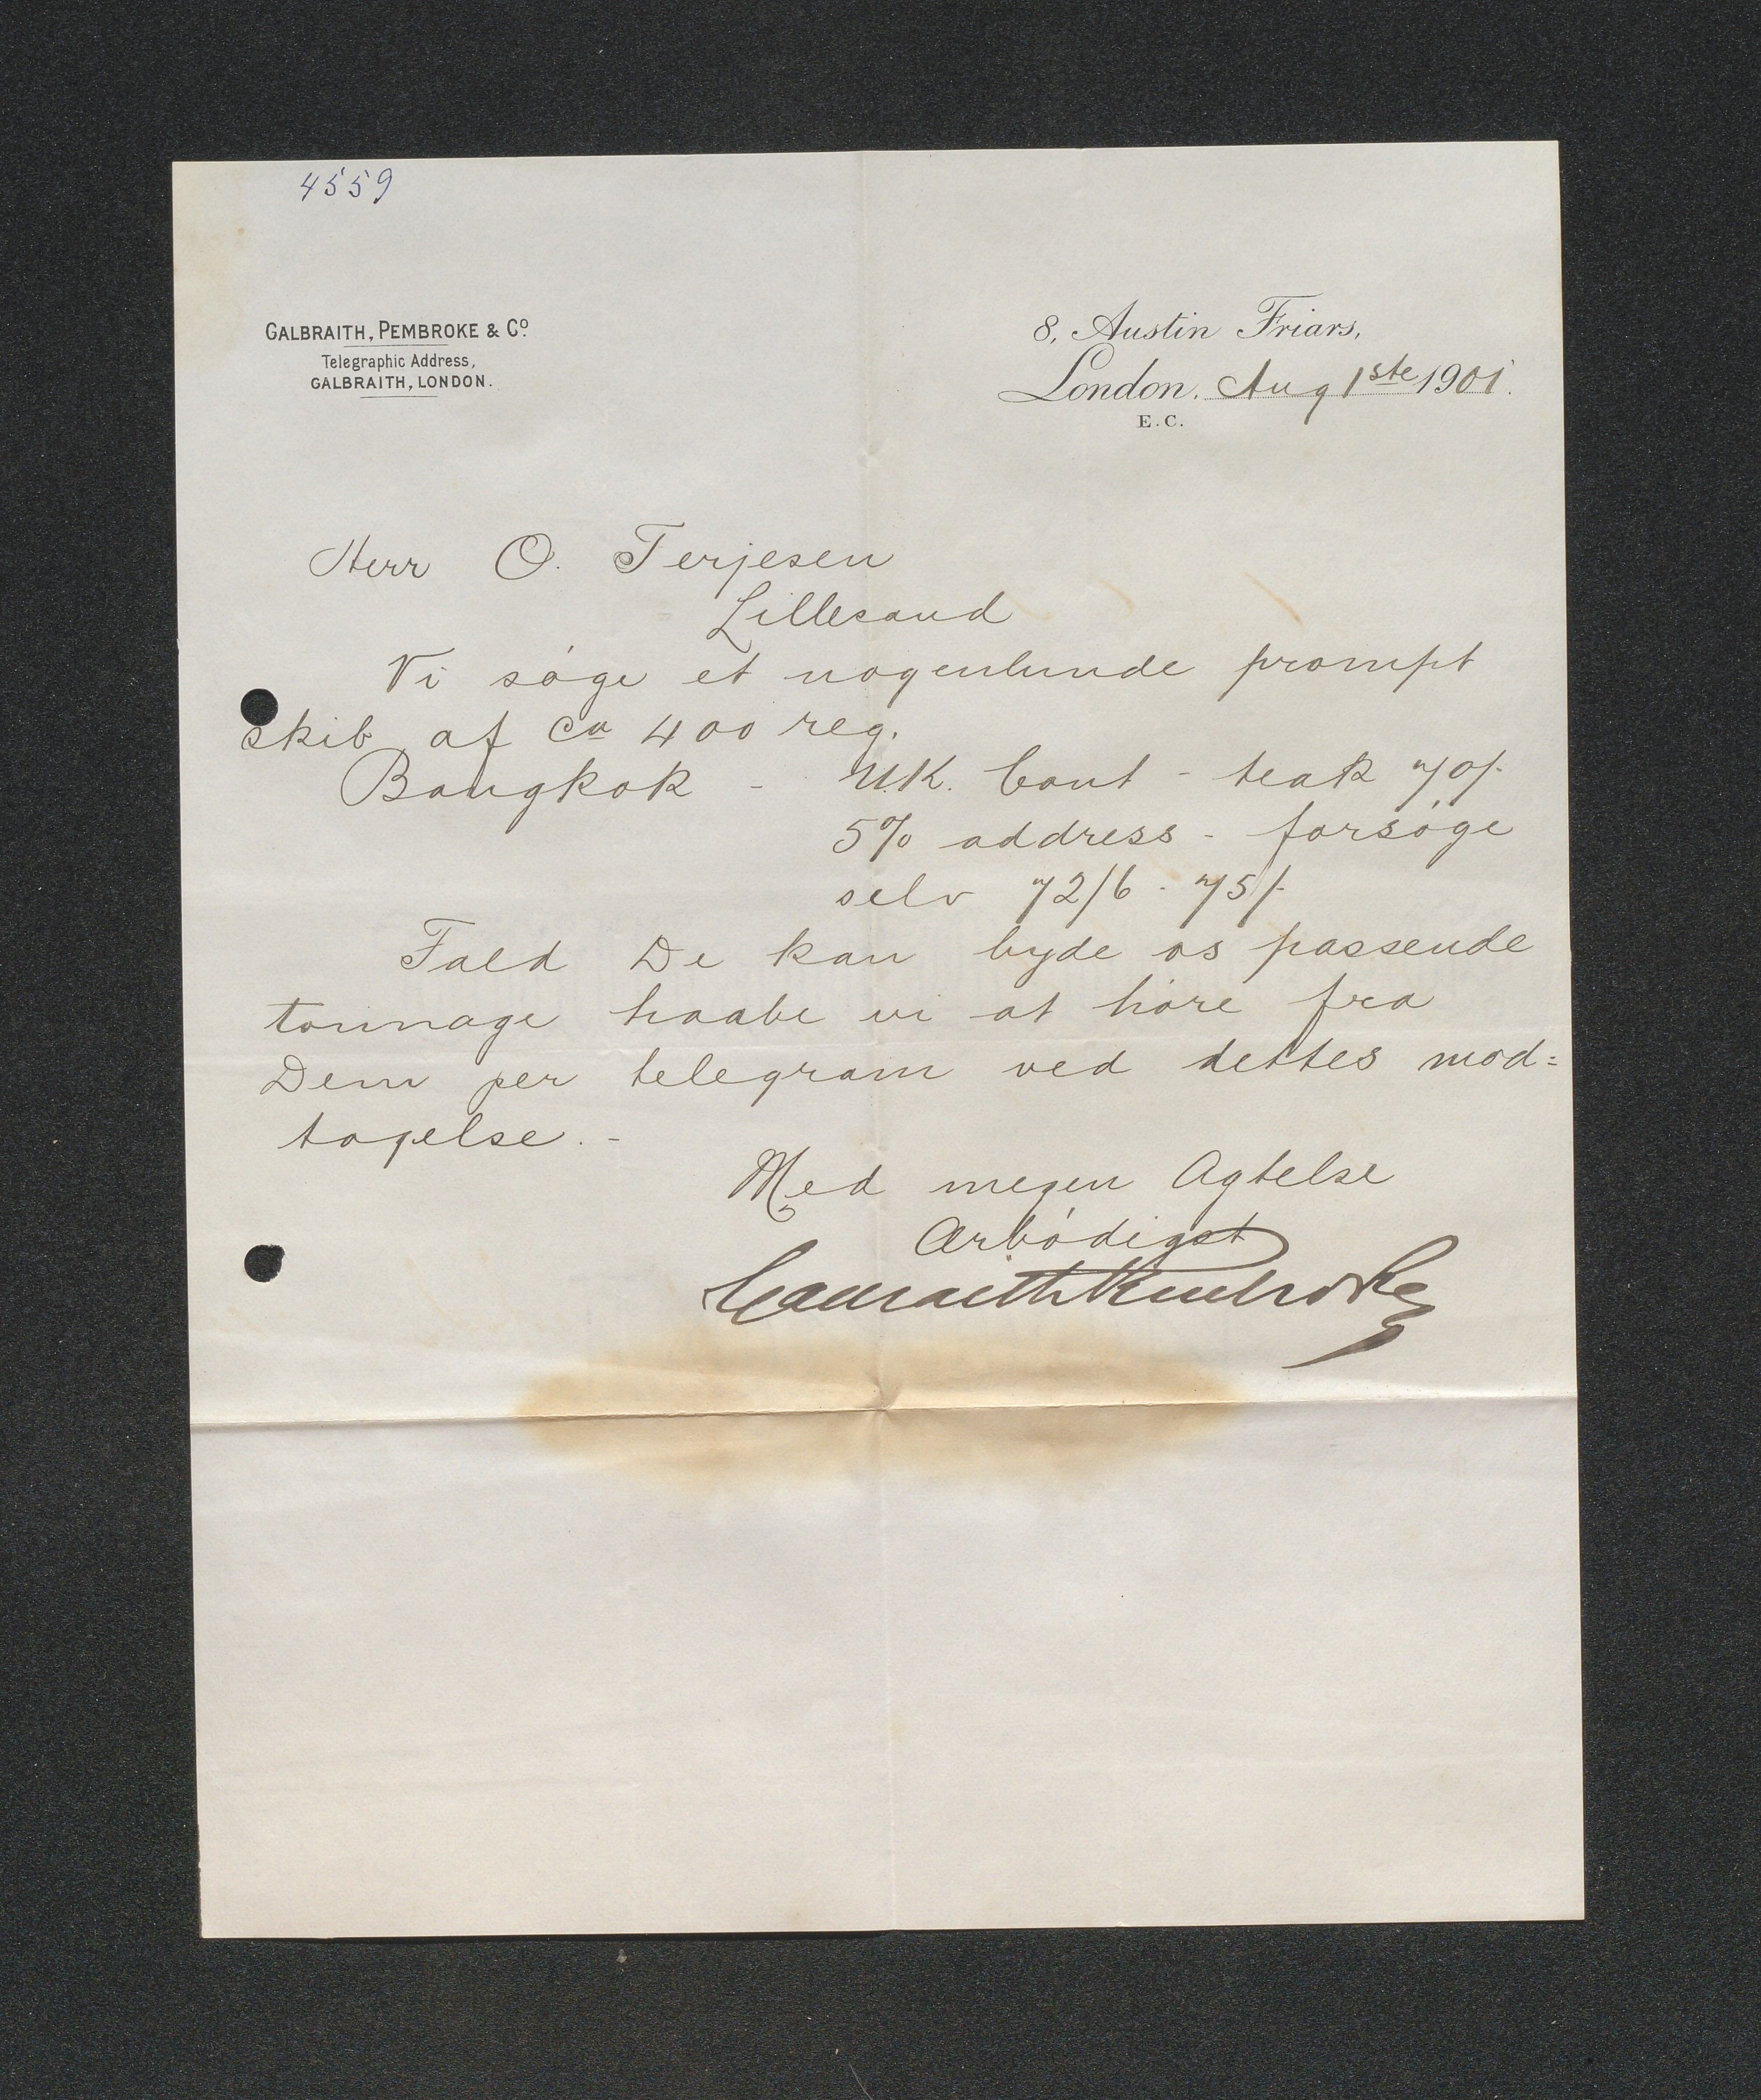 4559
GALBRAITH, PEMBROKE & Cº.
Telegraphic Address,
GALBRAITH, LONDON.
8, Austin Friars,
London, Aug 1ste 1901.
E.C.
Herr O. Terjesen
Lillesand
Vi söge et nogenlunde prompt
skib af ca 400 reg.
Bangkok - U.K. Cont - teak 70/-
5% address - forsöge
selv 72/6 - 75/-
Fald De kan byde os passende
tonnage haabe vi at höre fra
Dem per telegram ved dettes mod=
tagelse. -
Med megen Agtelse
Ærbödigst
Galbraith Pembroke